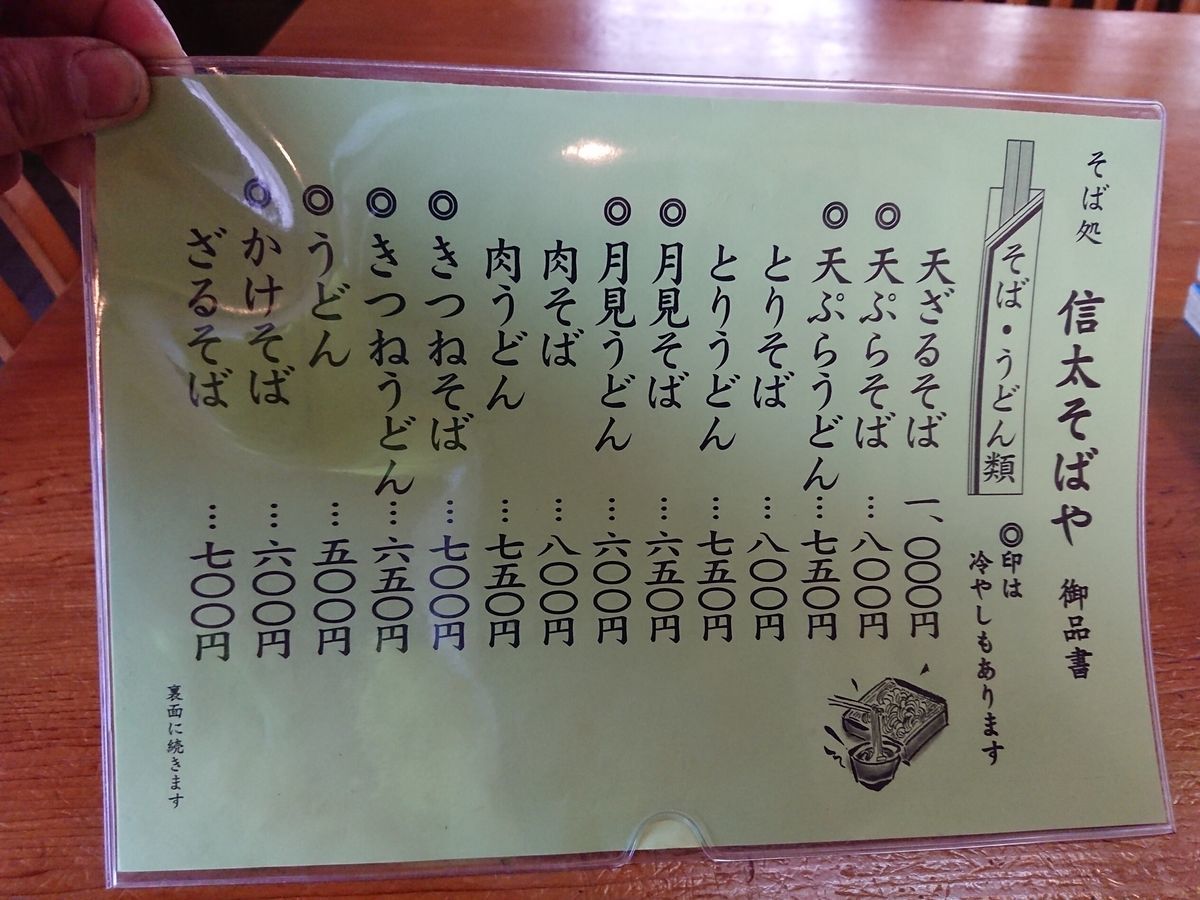 そば処 信太そばや 御品書
そば・うどん類
◎印は
冷やしもあります
天ざるそば 一、〇〇〇円
◎天ぷらそば … 八〇〇円
◎天ぷらうどん … 七五〇円
とりそば … 八〇〇円
とりうどん … 七五〇円
◎月見そば … 六五〇円
◎月見うどん … 六〇〇円
肉そば … 八〇〇円
肉うどん … 七五〇円
◎きつねそば … 七〇〇円
◎きつねうどん … 六五〇円
◎うどん … 五〇〇円
◎かけそば … 六〇〇円
ざるそば … 七〇〇円
裏面に続きます